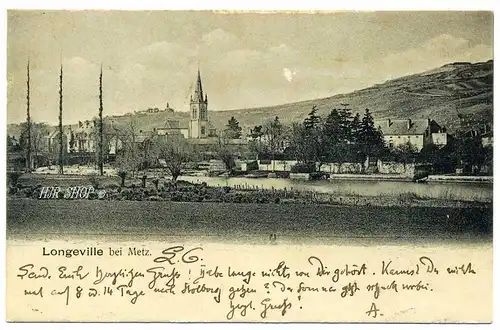 HJR SHOP ©
Longeville bei Metz. L. 6
Send. Euch herzlichen Gruß! Habe lange nichts von Dir gehört. Kannst Du nicht
mal auf 8 u. 14 Tage nach Stolberg gehen? Der Sommer geht rasch vorbei.
herzl. Gruß! A.